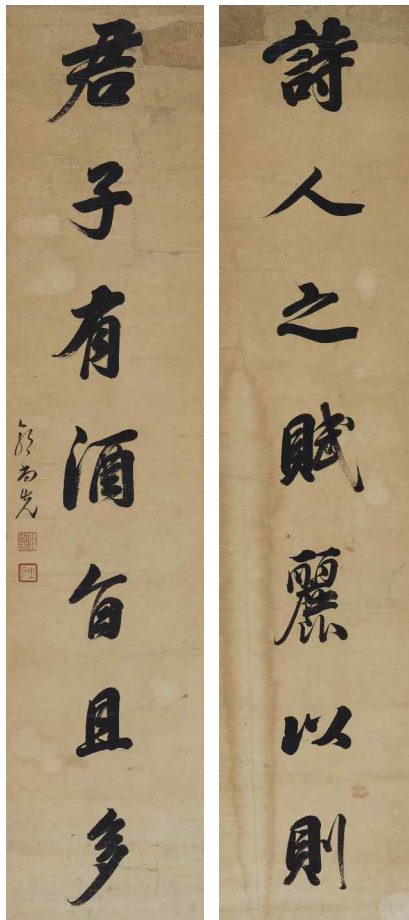 詩人之賦麗以則
君子有酒旨且多
尚先